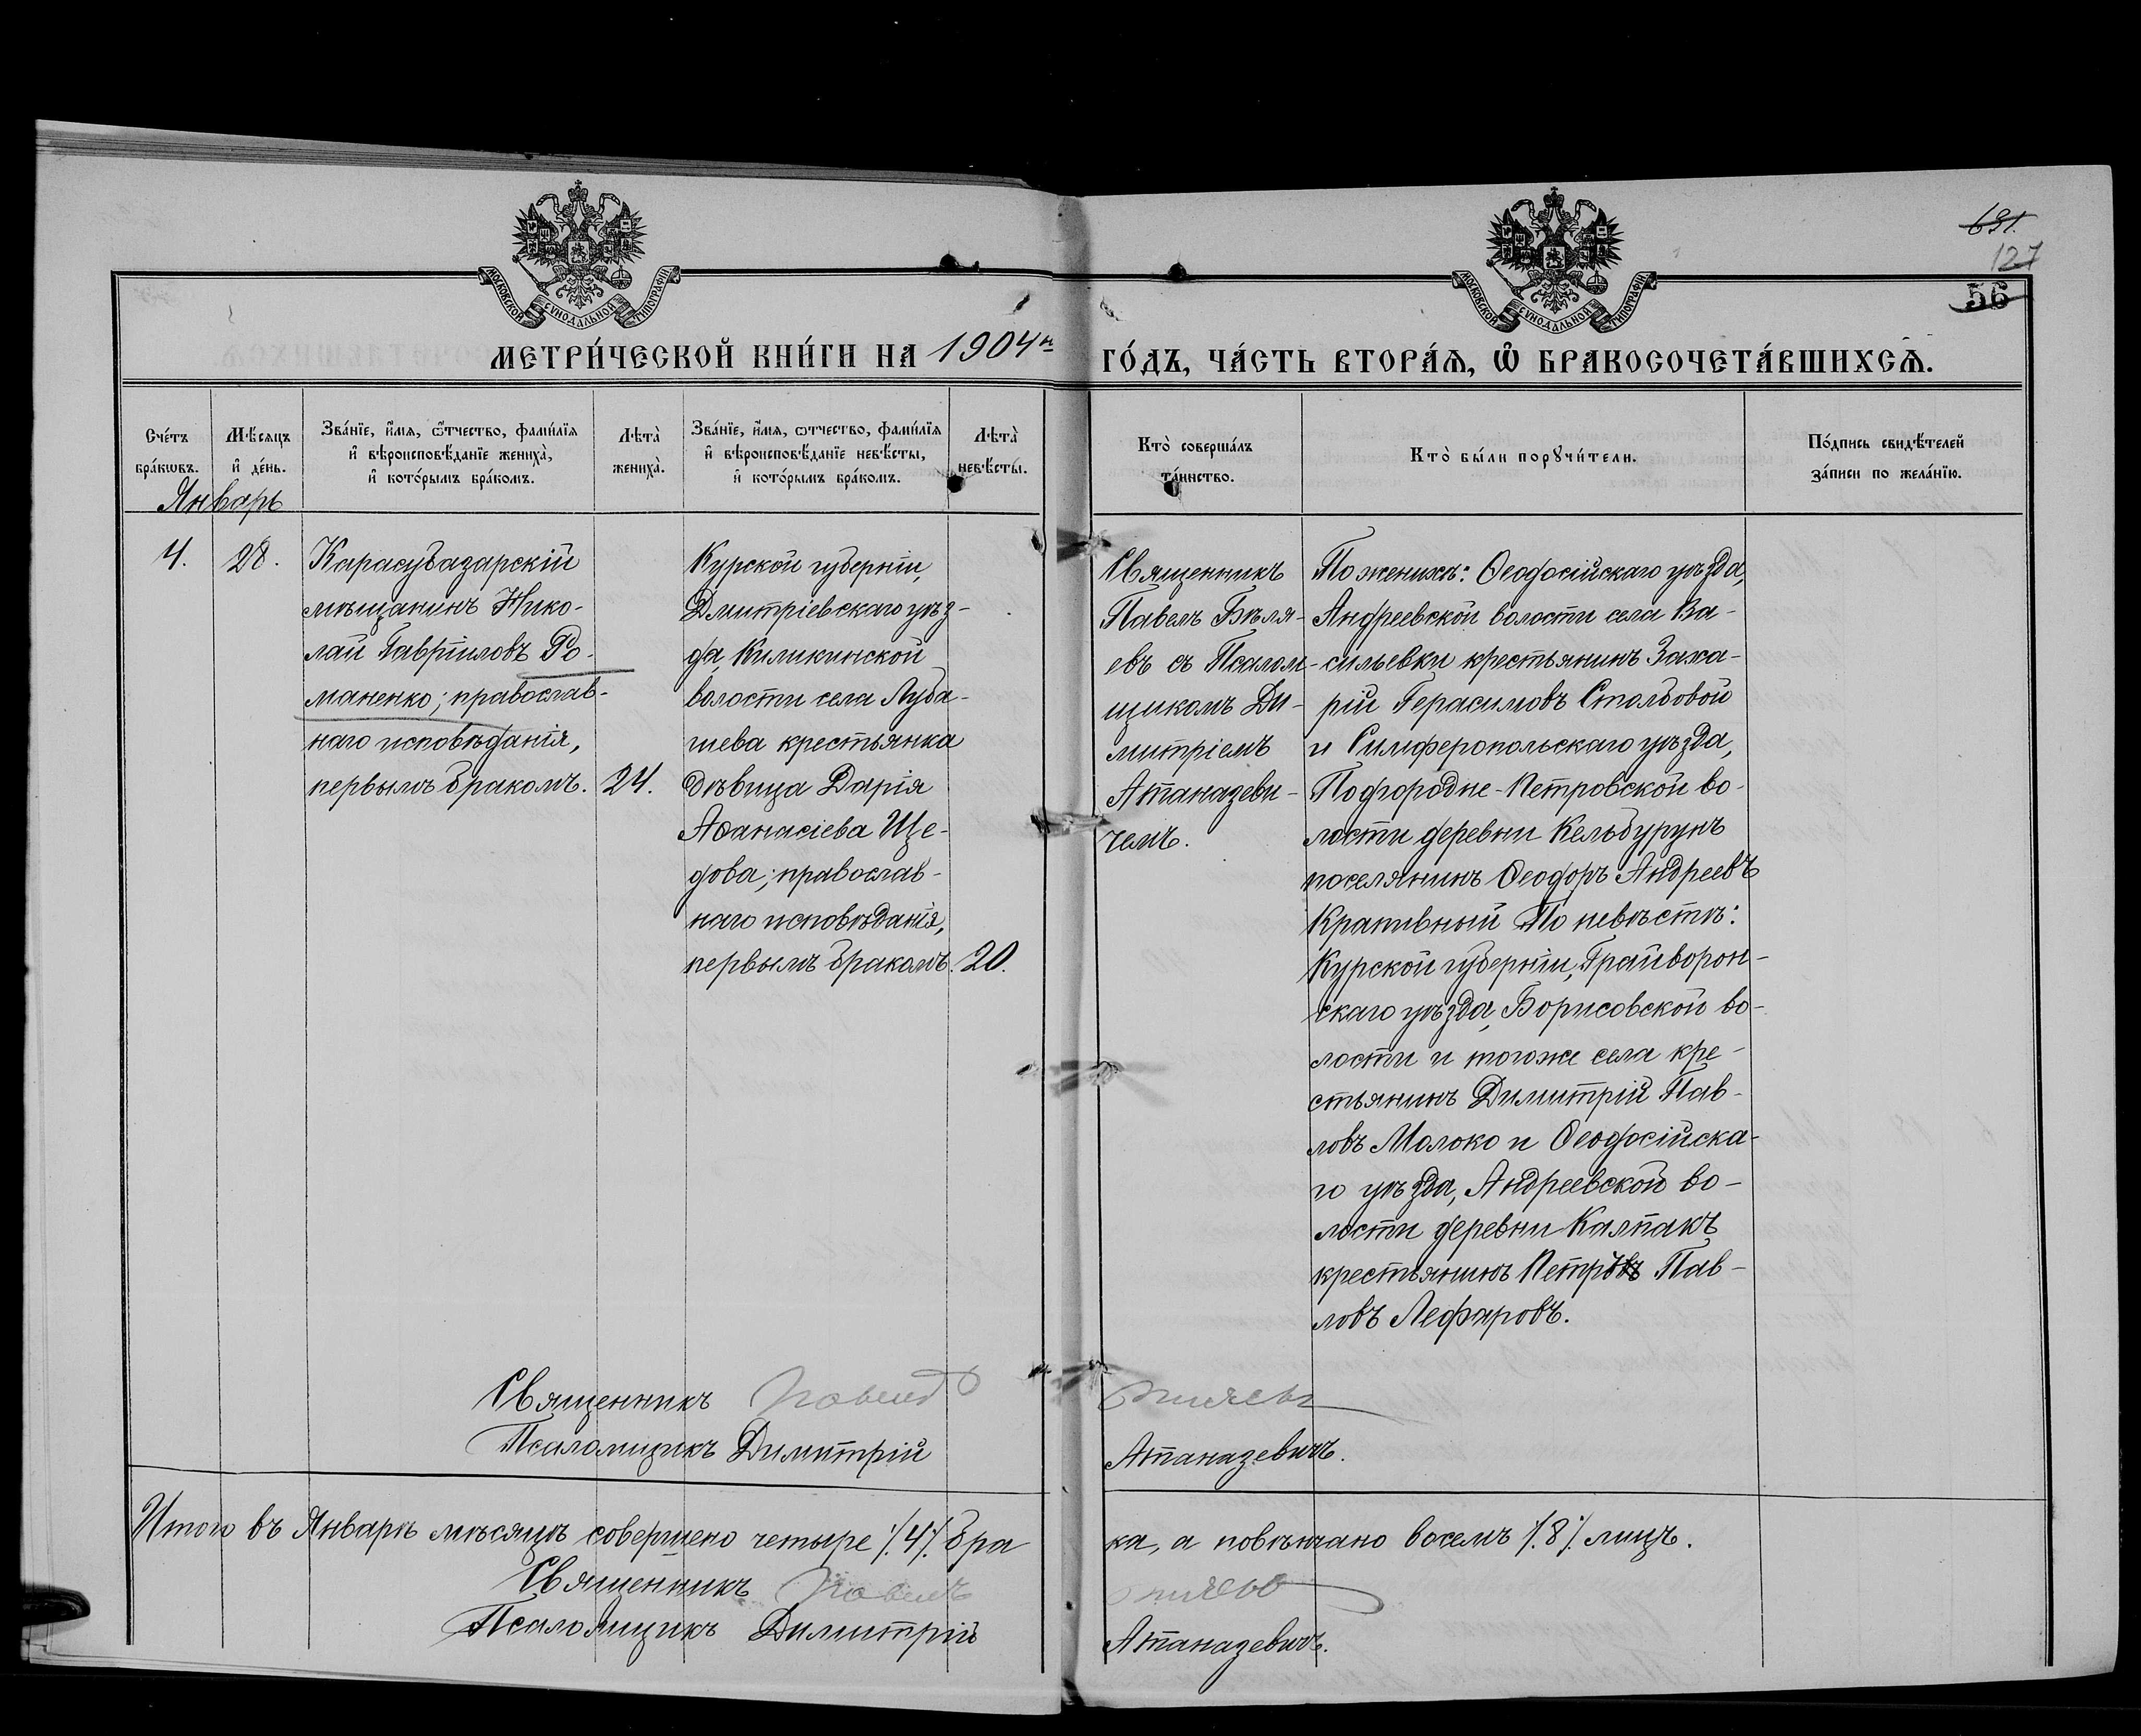 691.
127
56
МОСКОВСКОЙ СѴНОДАЛЬНОЙ ТИПОГРАФІИ
МОСКОВСКОЙ СѴНОДАЛЬНОЙ ТИПОГРАФІИ
МЕТРИ́ЧЕСКОЙ КНИ́ГИ НА 1904й ГО́ДЪ, ЧА́СТЬ ВТОРА́Ѧ, Ѽ БРАКОСОЧЕТА́ВШИХСѦ.
Сче́тъ
бра́кѡвъ.
Мѣ́сяцъ
и҆ де́нь.
Зва́нїе, и҆́мя, ѻ҆́тчество, фами́лїя
и҆ вѣроисповѣ́данїе жениха̀,
и҆ кото́рымъ бра́комъ.
Лѣта̀
жениха̀.
Зва́нїе, и҆́мя, ѻ҆́тчество, фами́лїя
и҆ вѣроисповѣ́данїе невѣ́сты,
и҆ кото́рымъ бра́комъ.
Лѣта̀
невѣ́сты.
Кто̀ соверша́лъ
та́инство.
Кто̀ бы́ли порꙋчи́тели.
По́дпись свидѣ́телей
за́писи по жела́нїю.
Январь
4.
28.
Карасубазарскій
мѣщанинъ Нико-
лай Гавріиловъ Ро-
маненко; православ-
наго исповѣданія,
первымъ бракомъ.
24.
Курской губерніи,
Дмитріевскаго уѣз-
да, Киликинской
волости села Луба-
шева крестьянка
дѣвица Дарія
Аѳанасіева Ще-
дова; православ-
наго исповѣданія,
первымъ бракомъ.
20.
Священникъ
Павелъ Бѣля-
евъ съ Псалом-
щикомъ Ди-
митріемъ
Атаназеви-
чемъ.
По женихѣ: Ѳеодосійскаго уѣзда,
Андреевской волости села Ва-
сильевки крестьянинъ Заха-
рій Герасимовъ Столбовой
и Симферопольскаго уѣзда,
Подгородне-Петровской во-
лости деревни Кельбурунъ
поселянинъ Ѳеодоръ Андреевъ
Крапивный По невѣстѣ:
Курской губерніи, Грайворон-
скаго уѣзда, Борисовской во-
лости и тогоже села кре-
стьянинъ Димитрій Пав-
ловъ Молоко и Ѳеодосійска-
го уѣзда, Андреевской во-
лости деревни Калпакъ
крестьянинъ Петръ Пав-
ловъ Лефаровъ.
Священникъ Павелъ Бѣляевъ
Псаломщикъ Димитрій Атаназевичъ.
Итого въ Январѣ мѣсяцѣ совершено четыре /.4/. бра ка, а повѣнчано восемъ /.8/. лицъ.
Священникъ Павелъ Бѣляевъ
Псаломщикъ Димитрій Атаназевичъ.